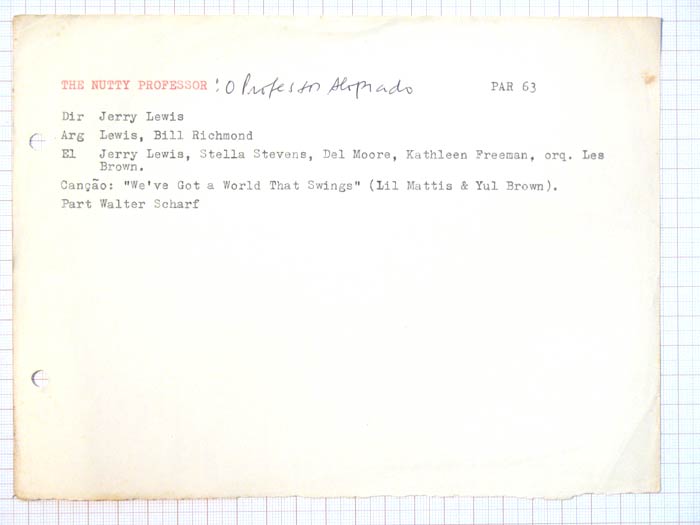 THE NUTTY PROFESSOR : O Professor Aloprado PAR 63
Dir Jerry Lewis
Arg Lewis, Bill Richmond
El Jerry Lewis, Stella Stevens, Del Moore, Kathleen Freeman, orq. Les
Brown.
Canção: "We've Got a World That Swings" (Lil Mattis & Yul Brown).
Part Walter Scharf